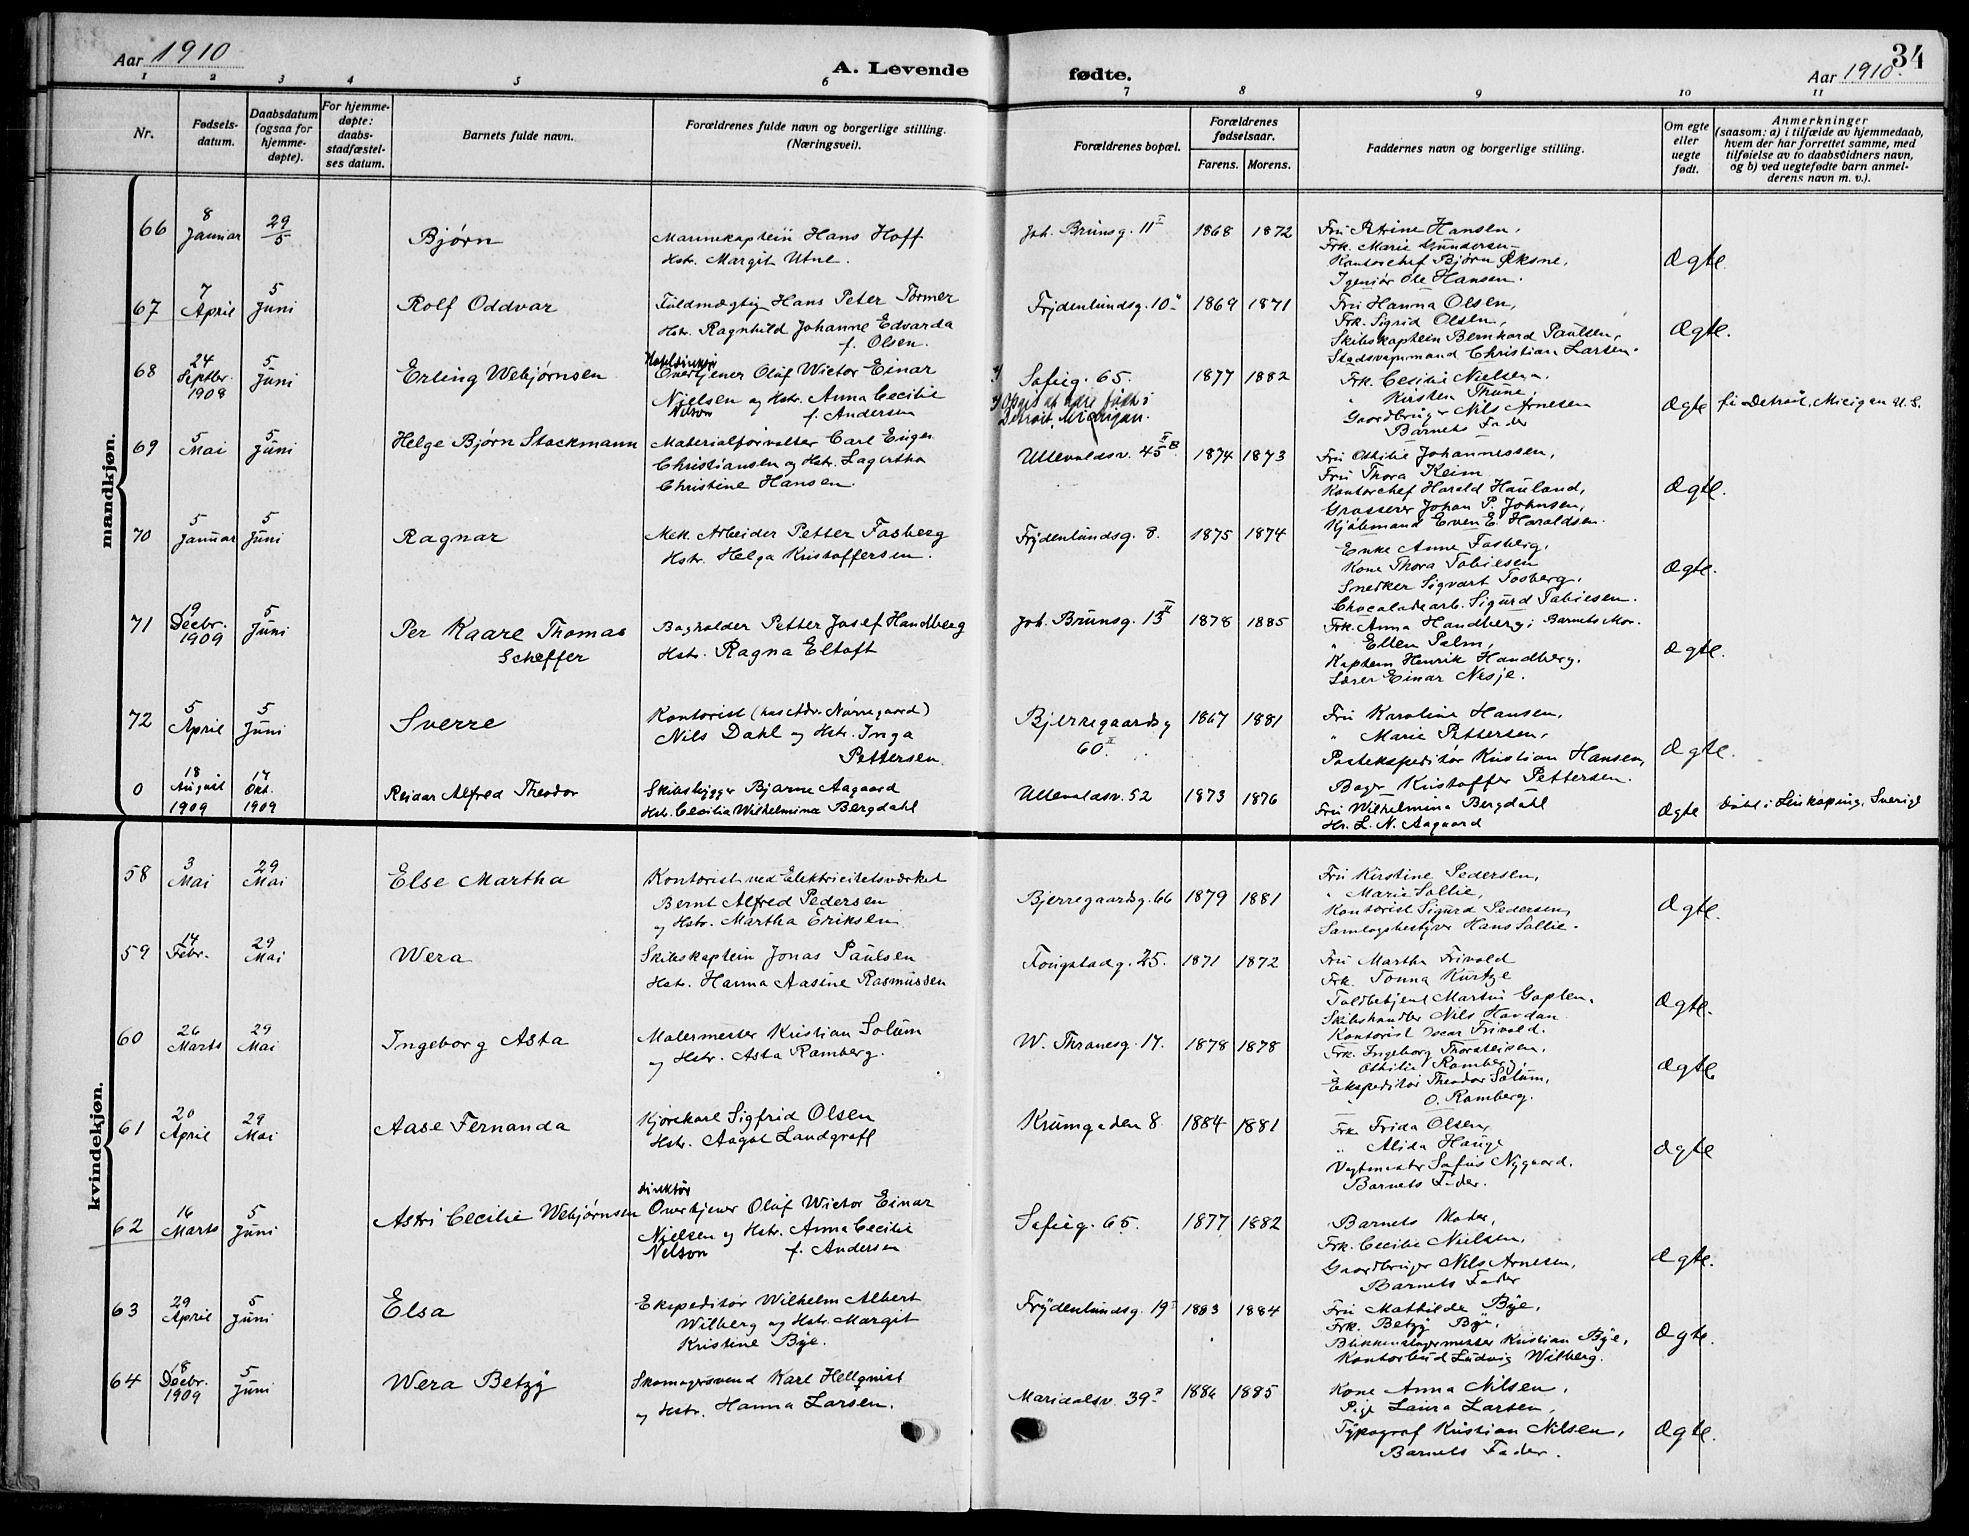 Aar 1910
A. Levende
fødte.
Aar 1910.
34
1 2 3 4 5 6 7 8 9 10 11
Nr.
Fødsels-
datum.
Daabsdatum
(ogsaa for
hjemme-
døpte).
For hjemme-
døpte:
daabs-
stadfæstel-
ses datum.
Barnets fulde navn.
Forældrenes fulde navn og borgerlige stilling.
(Næringsvei).
Forældrenes bopæl.
Forældrenes
fødselsaar.
Farens. Morens.
Faddernes navn og borgerlige stilling.
Om egte
eller
uegte
født.
Anmerkninger
(saasom: a) i tilfælde av hjemmedaab,
hvem der har forrettet samme, med
tilføielse av to daabsvidners navn,
og b) ved uegtefødte barn anmel-
derens navn m. v.).
mandkjøn.
66
8
Januar
29
5
Bjørn
Marinekaptein Hans Hoff
Hstr. Margit Utne.
Joh. Brunsg. 11 I
1868 1872
Fru Petrine Hansen,
Frk. Marie Gundersen
Kontorchef Bjørn
Igeniør Ole Hansen.
Ægte
67
7
April
5
Juni
Rolf Oddvar
Fuldmægtig Hans Peter Tørmer
Hstr. Ragnhild Johanne Edvarda
f. Olsen.
Frydenlundsg. 10
1869 1871
Fru Hanna Olsen,
Frk. Sigrid Olsen,
Skibskaptein Bernhard Paulsen,
Christian Larsen.
Ægte.
68
24
Septbr.
1908
5
Juni
Erling Webjørnsen
Overtjener Oluf Wictor Einar
Nielsen og Hstr. Anna Cecilie
Nelson f. Andersen
Sofieg. 65.
Detroit, Michigan.
1877 1882
Frk. Cecilie Nielsen.
" Kirsten Thune
Gaardbruger Nils Arnesen
Barnets Fader
Ægte
Detroit, Micigan U.S.
69
5
Mai
5
Juni
Helge Bjørn Stockmann
Materialforvalter Carl Eugen
Christiansen og Hstr. Lagertha
Christine Hansen.
Ullevoldsv. 45 II B.
1874 1873
Fru Othilie Johannessen,
Fru Thora Keim
Kontorchef Harald Hauland,
Grosserer Johan P. Johnsen,
Kjøbmand Even E. Haraldsen.
Ægte.
70
5
Januar
5
Juni
Ragnar
Mek. Arbeider Petter Fosberg
Hstr. Helga Kristoffersen.
Frydenlundsg. 8.
1875 1874
Enke Anne Fosberg,
Kone Thora Tobiesen
Snedker Sigvart Fosberg,
Chocoladearb. Sigurd Tobiesen.
Ægte.
71
19
Decbr.
1909
5
Juni
Per Kaare Thomas
Scheffer
Bogholder Petter Josef Handberg
Hstr. Ragna Eltoft
Joh. Brunsg. 13 II
1878 1885
Frk. Anna Handberg, Barnets Mor.
" Ellen Palm,
Kaptein Henrik Handberg.
Lærer Einar Nesje.
Ægte.
72
5
April
5
Juni
Sverre
Kontorist (hos Adv. Nørregaard)
Nils Dahl og Hstr. Inga
Pettersen.
Bjerregaardsg
60 II.
1867 1881
Fru Karoline Hansen,
" Marie Pettersen,
Postekspeditør Kristian Hansen,
Bager Kristoffer Pettersen.
Ægte.
0
18
August
1909
17
Okt.
1909
Reidar Alfred Theodor
Skibsbygger Bjarne Aagaard
Hstr. Cecilia Wilhelmina Bergdahl
Ullevoldsv. 52
1873 1876
Fru Wilhelmina Bergdahl
Hr. L. N. Aagaard
Ægte
Døbt i Linköping, Sverige
kvindekjøn.
58
3
Mai
29
Mai
Else Martha
Kontorist ved Elektricitetsværket
Bernt Alfred Pedersen
og Hstr. Martha Eriksen
Bjerregaardsg. 66
1879 1881
Fru Kirstine Pedersen,
" Marie Sollie,
Kontorist Sigurd Pedersen,
Samlagsbestyrer Hans Sollie.
Ægte.
59
14
Febr.
29
Mai
Wera
Skibskaptein Jonas Paulsen
Hstr. Hanna Aasine Rasmussen
Fougstadg. 25.
1871 1872
Fru Martha Frivold
Frk. Tonna
Toldbetjent Martin
Skibshandler Nils Havdan
Kontorist Oscar Frivold.
Ægte.
60
26
Marts
29
Mai
Ingeborg Asta
Malermester Kristian Solum
og Hstr. Asta Ramberg.
W. Thranesg. 17.
1878 1878
Frk. Ingeborg Thorsteisen,
" Othilie Ramberg,
Ekspeditør Theodor Solum,
" O. Ramberg.
Ægte
61
20
April
29
Mai
Aase Fernanda
Kjørekarl Sigfrid Olsen
Hstr. Aagot Landgraff
Krumgaden 8.
1884 1881
Frk. Frida Olsen,
" Alida Hauge
Vagtmester Sofus Nygaard.
Barnets Fader.
Ægte
62
16
Marts
5
Juni
Astri Cecilie Webjørnsen
Direktør
Overtjener Oluf Wictor Einar
Nielsen og Hstr. Anna Cecilie
Nelson f. Andersen
Sofieg. 65.
1877 1882
Barnets Moder,
Frk. Cecilie Nielsen,
Gaardbruger Nils Arnesen,
Barnets Fader
Ægte.
63
29
April
5
Juni
Elsa
Ekspeditør Wilhelm Albert
Wilberg og Hstr. Margit
Kristine Bye.
Frydenlundsg. 19
1883 1884
Fru Mathilde Bye,
Frk. Betzy Bye,
Blikkenslagermester Kristian Bye,
Kontorbud Ludvig Wilberg.
Ægte.
64
18
Decbr.
1909
5
Juni
Wera Betzy
Skomagersvend Karl Hellqvist
og Hstr. Hanna Larsen.
Maridalsv. 39
1886 1885
Kone Anna Nilsen,
Pige Laura Larsen,
Typograf Kristian Nilsen,
Barnets Fader.
Ægte.